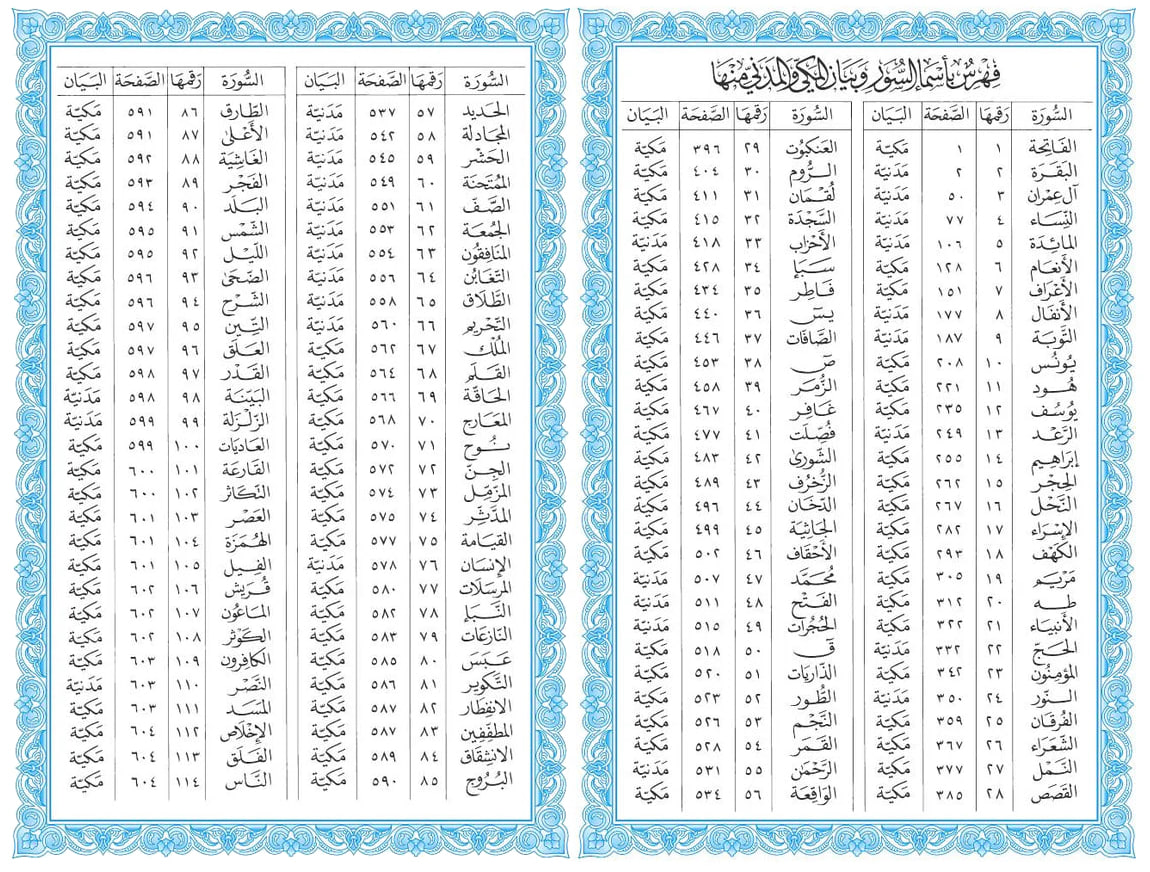 فهرس بأسماء السور وبيان المكي والمدني منها
السُّورَة رَقمهَا الصَّفحَة البَيَان
الفَاتِحَة ١ ١ مَكيّة
البَقَرَة ٢ ٢ مَدَنيّة
آل عِمرَان ٣ ٥٠ مَدَنيّة
النِّسَاء ٤ ٧٧ مَدَنيّة
المَائدة ٥ ١٠٦ مَدَنيّة
الأنعَام ٦ ١٢٨ مَكيّة
الأعرَاف ٧ ١٥١ مَكيّة
الأنفَال ٨ ١٧٧ مَدَنيّة
التوبَة ٩ ١٨٧ مَدَنيّة
يُونُس ١٠ ٢٠٨ مَكيّة
هُود ١١ ٢٢١ مَكيّة
يُوسُف ١٢ ٢٣٥ مَكيّة
الرَّعْد ١٣ ٢٤٩ مَدَنيّة
إبراهِيم ١٤ ٢٥٥ مَكيّة
الحِجْر ١٥ ٢٦٢ مَكيّة
النَّحْل ١٦ ٢٦٧ مَكيّة
الإسْرَاء ١٧ ٢٨٢ مَكيّة
الكَهْف ١٨ ٢٩٣ مَكيّة
مَرْيَم ١٩ ٣٠٥ مَكيّة
طه ٢٠ ٣١٢ مَكيّة
الأنبيَاء ٢١ ٣٢٢ مَكيّة
الحَجّ ٢٢ ٣٣٢ مَدَنيّة
المؤمنُون ٢٣ ٣٤٢ مَكيّة
النُّور ٢٤ ٣٥٠ مَدَنيّة
الفُرقان ٢٥ ٣٥٩ مَكيّة
الشُّعَرَاء ٢٦ ٣٦٧ مَكيّة
النَّمْل ٢٧ ٣٧٧ مَكيّة
القَصَص ٢٨ ٣٨٥ مَكيّة
السُّورَة رَقمهَا الصَّفحَة البَيَان
العَنكبُوت ٢٩ ٣٩٦ مَكيّة
الرُّوم ٣٠ ٤٠٤ مَكيّة
لُقْمَان ٣١ ٤١١ مَكيّة
السَّجْدَة ٣٢ ٤١٥ مَكيّة
الأحْزاب ٣٣ ٤١٨ مَدَنيّة
سَبَأ ٣٤ ٤٢٨ مَكيّة
فَاطِر ٣٥ ٤٣٤ مَكيّة
يسٓ ٣٦ ٤٤٠ مَكيّة
الصَّافات ٣٧ ٤٤٦ مَكيّة
صٓ ٣٨ ٤٥٣ مَكيّة
الزُّمَر ٣٩ ٤٥٨ مَكيّة
غَافِر ٤٠ ٤٦٧ مَكيّة
فُصِّلَت ٤١ ٤٧٧ مَكيّة
الشُّورىٰ ٤٢ ٤٨٣ مَكيّة
الزّخْرُف ٤٣ ٤٨٩ مَكيّة
الدّخَان ٤٤ ٤٩٦ مَكيّة
الجَاثِيَة ٤٥ ٤٩٩ مَكيّة
الأحْقاف ٤٦ ٥٠٢ مَكيّة
مُحَمَّد ٤٧ ٥٠٧ مَدَنيّة
الفَتْح ٤٨ ٥١١ مَدَنيّة
الحُجُرات ٤٩ ٥١٥ مَدَنيّة
قٓ ٥٠ ٥١٨ مَكيّة
الذّاريَات ٥١ ٥٢٠ مَكيّة
الطُّور ٥٢ ٥٢٣ مَكيّة
النَّجْم ٥٣ ٥٢٦ مَكيّة
القَمَر ٥٤ ٥٢٨ مَكيّة
الرَّحْمٰن ٥٥ ٥٣١ مَدَنيّة
الوَاقِعَة ٥٦ ٥٣٤ مَكيّة
السُّورَة رَقمهَا الصَّفحَة البَيَان
الحَديد ٥٧ ٥٣٧ مَدَنيّة
المجَادلة ٥٨ ٥٤٢ مَدَنيّة
الحَشْر ٥٩ ٥٤٥ مَدَنيّة
المُمتَحنَة ٦٠ ٥٤٩ مَدَنيّة
الصَّف ٦١ ٥٥١ مَدَنيّة
الجُمعَة ٦٢ ٥٥٣ مَدَنيّة
المنَافِقون ٦٣ ٥٥٤ مَدَنيّة
التغَابُن ٦٤ ٥٥٦ مَدَنيّة
الطَّلَاق ٦٥ ٥٥٨ مَدَنيّة
التَّحْريم ٦٦ ٥٦٠ مَدَنيّة
المُلْك ٦٧ ٥٦٢ مَكيّة
القَلَم ٦٨ ٥٦٤ مَكيّة
الحَاقّة ٦٩ ٥٦٦ مَكيّة
المعَارج ٧٠ ٥٦٨ مَكيّة
نُوح ٧١ ٥٧٠ مَكيّة
الجِنّ ٧٢ ٥٧٢ مَكيّة
المزّمّل ٧٣ ٥٧٤ مَكيّة
المدَّثّر ٧٤ ٥٧٥ مَكيّة
القيَامة ٧٥ ٥٧٧ مَكيّة
الإنسَان ٧٦ ٥٧٨ مَدَنيّة
المرسَلات ٧٧ ٥٨٠ مَكيّة
النَّبَإ ٧٨ ٥٨٢ مَكيّة
النّازعَات ٧٩ ٥٨٣ مَكيّة
عَبَسَ ٨٠ ٥٨٥ مَكيّة
التَّكوير ٨١ ٥٨٦ مَكيّة
الانفِطار ٨٢ ٥٨٧ مَكيّة
المطفِّفِين ٨٣ ٥٨٧ مَكيّة
الانشِقاق ٨٤ ٥٨٩ مَكيّة
البُرُوج ٨٥ ٥٩٠ مَكيّة
السُّورَة رَقمهَا الصَّفحَة البَيَان
الطَّارق ٨٦ ٥٩١ مَكيّة
الأعْلىٰ ٨٧ ٥٩١ مَكيّة
الغَاشِيَة ٨٨ ٥٩٢ مَكيّة
الفَجْر ٨٩ ٥٩٣ مَكيّة
البَلَد ٩٠ ٥٩٤ مَكيّة
الشَّمْس ٩١ ٥٩٥ مَكيّة
اللّيْل ٩٢ ٥٩٥ مَكيّة
الضّحَىٰ ٩٣ ٥٩٦ مَكيّة
الشَّرْح ٩٤ ٥٩٦ مَكيّة
التِّين ٩٥ ٥٩٧ مَكيّة
العَلَق ٩٦ ٥٩٧ مَكيّة
القَدْر ٩٧ ٥٩٨ مَكيّة
البَيّنَة ٩٨ ٥٩٨ مَدَنيّة
الزّلْزَلة ٩٩ ٥٩٩ مَدَنيّة
العَاديَات ١٠٠ ٥٩٩ مَكيّة
القَارعَة ١٠١ ٦٠٠ مَكيّة
التّكاثر ١٠٢ ٦٠٠ مَكيّة
العَصْر ١٠٣ ٦٠١ مَكيّة
الهُمَزة ١٠٤ ٦٠١ مَكيّة
الفِيل ١٠٥ ٦٠١ مَكيّة
قُرَيش ١٠٦ ٦٠٢ مَكيّة
المَاعُون ١٠٧ ٦٠٢ مَكيّة
الكَوْثر ١٠٨ ٦٠٢ مَكيّة
الكافِرون ١٠٩ ٦٠٣ مَكيّة
النَّصْر ١١٠ ٦٠٣ مَدَنيّة
المسَد ١١١ ٦٠٣ مَكيّة
الإخْلَاص ١١٢ ٦٠٤ مَكيّة
الفَلَق ١١٣ ٦٠٤ مَكيّة
النّاس ١١٤ ٦٠٤ مَكيّة